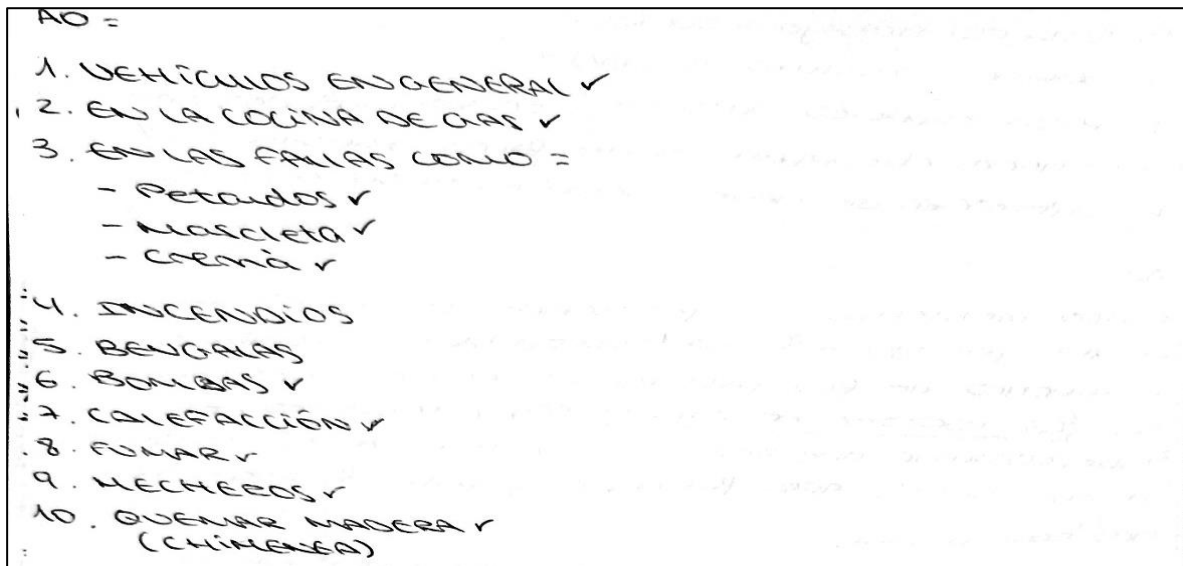 AO =
1. VEHÍCULOS EN GENERAL ✓
2. EN LA COCINA DE GAS ✓
3. EN LAS FALLAS COMO =
- Petardos ✓
- Mascleta ✓
- Cremà ✓
4. INCENDIOS
5. BENGALAS
6. BOMBAS ✓
7. CALEFACCIÓN ✓
8. FUMAR ✓
9. MECHEROS ✓
10. QUEMAR MADERA ✓
(CHIMENEA)